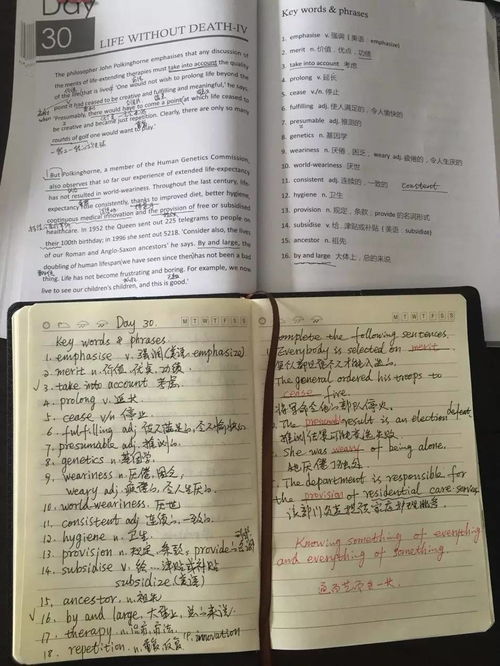 Day
30
LIFE WITHOUT DEATH-IV
The philosopher John Polkinghorne emphasises that any discussion of
the merits of life-extending therapies must take into account the quality
of the life that is lived. 'One would not wish to prolong life beyond the
point it had ceased to be creative and fulfilling and meaningful,' he says.
'Presumably, there would have to come a point at which life ceased to
be creative and became just repetition. Clearly, there are only so many
rounds of golf one would want to play.'
But Polkinghorne, a member of the Human Genetics Commission,
also observes that so far our experience of extended life-expectancy
has not resulted in world-weariness. Throughout the last century, life
expectancy rose consistently, thanks to improved diet, better hygiene,
continuous medical innovation and the provision of free or subsidised
healthcare. In 1952 the Queen sent out 225 telegrams to people on
their 100th birthday; in 1996 she sent out 5218. 'Consider also, the lives
of our Roman and Anglo-Saxon ancestors' he says. By and large, the
doubling of human lifespan we have seen since then has not been a bad
thing. Life has not become frustrating and boring. For example, we now
live to see our children's children, and this is good.'
Key words & phrases
1. emphasise v. 强调 (美语: emphasize)
2. merit n. 价值, 优点, 功绩
3. take into account 考虑
4. prolong v. 延长
5. cease v/n. 停止
6. fulfilling adj. 使人满足的, 令人愉快的
7. presumable adj. 推测的
8. genetics n. 基因学
9. weariness n. 厌倦, 困乏, weary adj. 疲倦的, 令人生厌的
10. world-weariness 厌世
11. consistent adj. 连续的, 一致的 consistent
12. hygiene n. 卫生
13. provision n. 规定, 条款, provide 的名词形式
14. subsidise v. 给…津贴或补贴 (英语: subsidise)
15. ancestor n. 祖先
16. by and large 大体上, 总的来说
Day 30.
MTWTFSS
Key words & phrases
1. emphasise v. 强调 (美语: emphasize)
2. merit n. 价值, 优点, 功绩
3. take into account 考虑
4. prolong v. 延长
5. cease v/n 停止
6. fulfilling adj 使人满足的, 令人愉快的
7. presumable adj. 推测的
8. genetics n. 基因学
9. weariness n. 厌倦, 困乏,
weary adj. 疲倦的, 令人生厌的
10. world-weariness. 厌世
11. consistent adj. 连续的, 一致的
12. hygiene n. 卫生
13. provision n. 规定, 条款, provide的名词
14. subsidise v. 给…津贴或补贴
subsidize (美语)
15. ancestor. n. 祖先
16. by and large. 大体上, 总的来说
17. therapy n. 治疗, 疗法
18. repetition. n. 重复, 反复 19. innovation
MTWTFSS
Complete the following sentences.
Everybody is selected on merit
The general ordered his troops to
cease fire.
将军命令他的部队停火。
The presumable result is an election defeat.
She was weary of being alone.
她厌倦了独处
The department is responsible for
the provision of residential care services
Knowing something of everything
and everything of something.